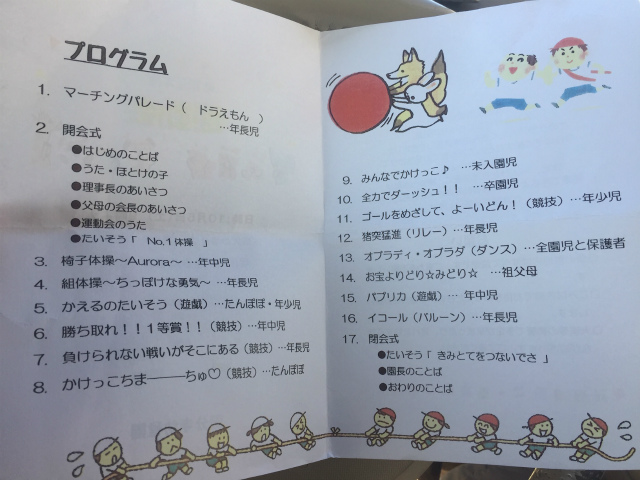 プログラム
1. マーチングパレード（ ドラえもん ）
…年長児
2. 開会式
●はじめのことば
●うた・ほとけの子
●理事長のあいさつ
●父母の会長のあいさつ
●運動会のうた
●たいそう「 No.1体操 」
3. 椅子体操～Aurora～ …年中児
4. 組体操～ちっぽけな勇気～ …年長児
5. かえるのたいそう（遊戯）…たんぽぽ・年少児
6. 勝ち取れ！！１等賞！！（競技）…年中児
7. 負けられない戦いがそこにある（競技）…年長児
8. かけっこちま―――ちゅ♡（競技）…たんぽぽ
9. みんなでかけっこ♪ …未入園児
10. 全力でダーッシュ！！ …卒園児
11. ゴールをめざして、よーいどん！（競技）…年少児
12. 猪突猛進（リレー）…年長児
13. オブラディ・オブラダ（ダンス）…全園児と保護者
14. お宝よりどり☆みどり☆ …祖父母
15. パプリカ（遊戯）… 年中児
16. イコール（バルーン）…年長児
17. 閉会式
●たいそう「 きみとてをつないでさ 」
●園長のことば
●おわりのことば